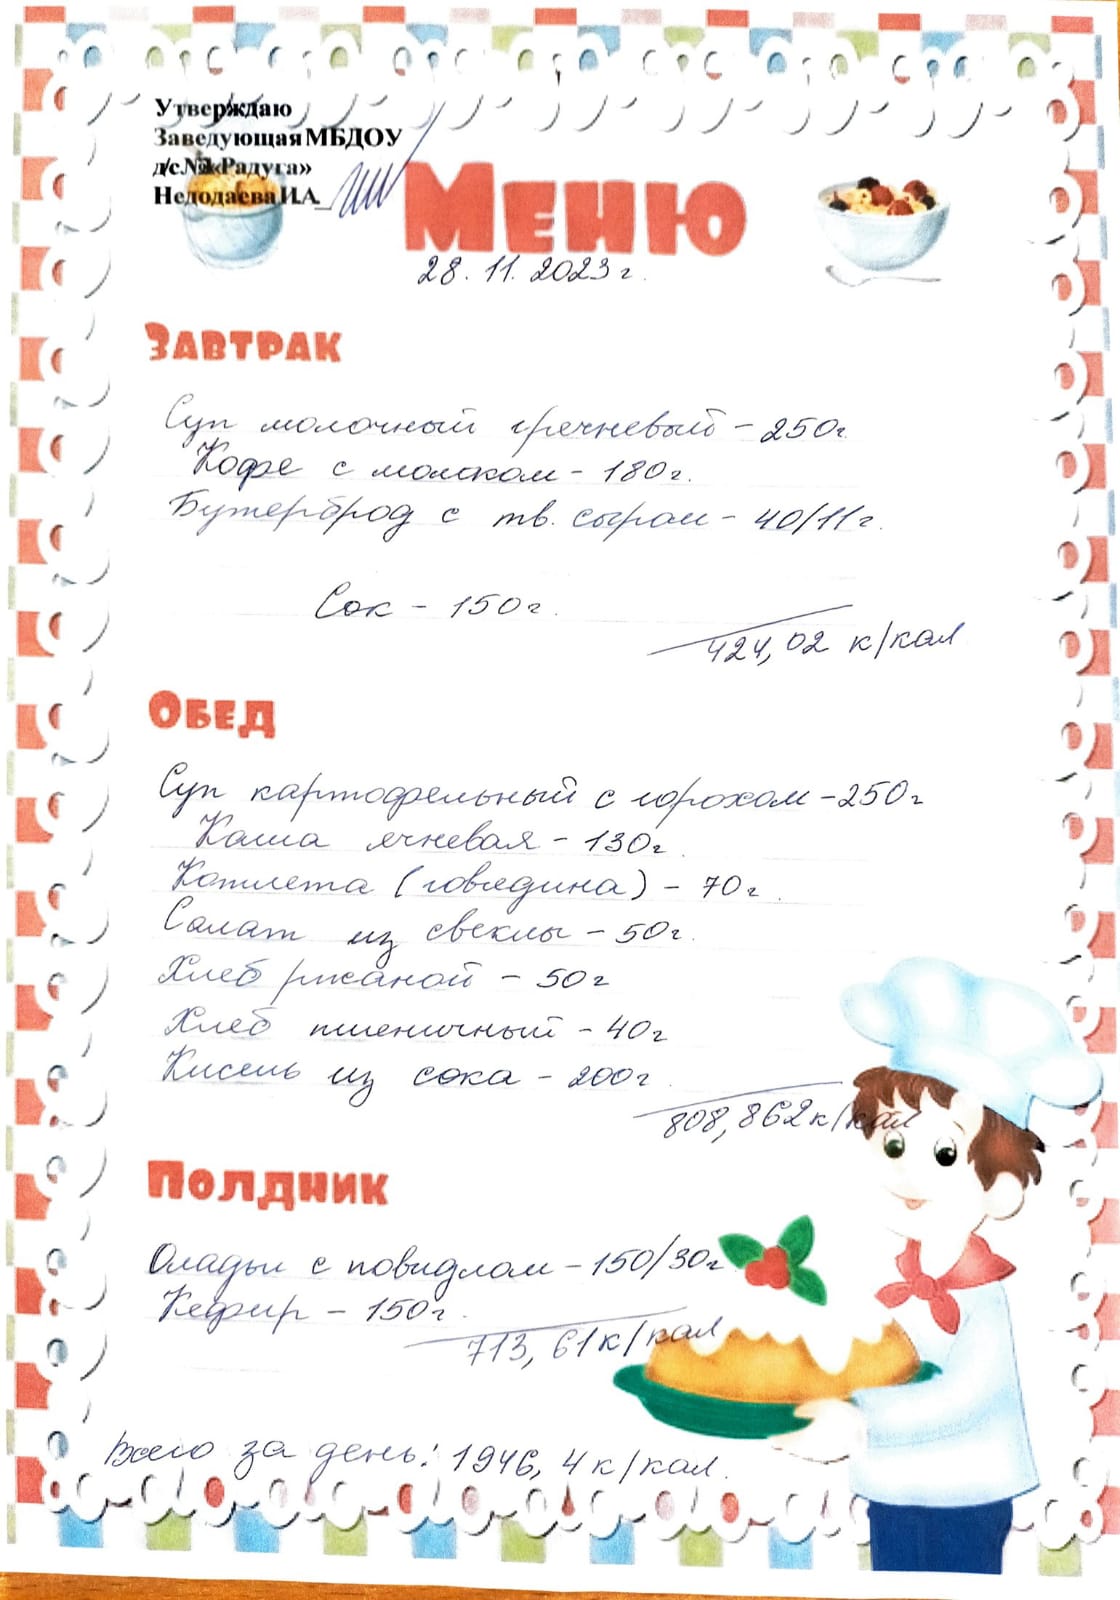 Утверждаю
Заведующая МБДОУ
д/с «Радуга»
Недодаева И.А.
Меню
28.11.2023г.
Завтрак
Суп молочный гречневый - 250г.
Кофе с молоком - 180г.
Бутерброд с тв. сыром - 40/11г.
Сок - 150г.
424,02 к/кал
Обед
Суп картофельный с горохом - 250г
Каша ячневая - 130г.
Котлета (говядина) - 70г.
Салат из свеклы - 50г.
Хлеб ржаной - 50г
Хлеб пшеничный - 40г
Кисель из сока - 200г.
808,862 к/кал
Полдник
Оладьи с повидлом - 150/30г
Кефир - 150г.
713,61 к/кал
Всего за день: 1946,4 к/кал.